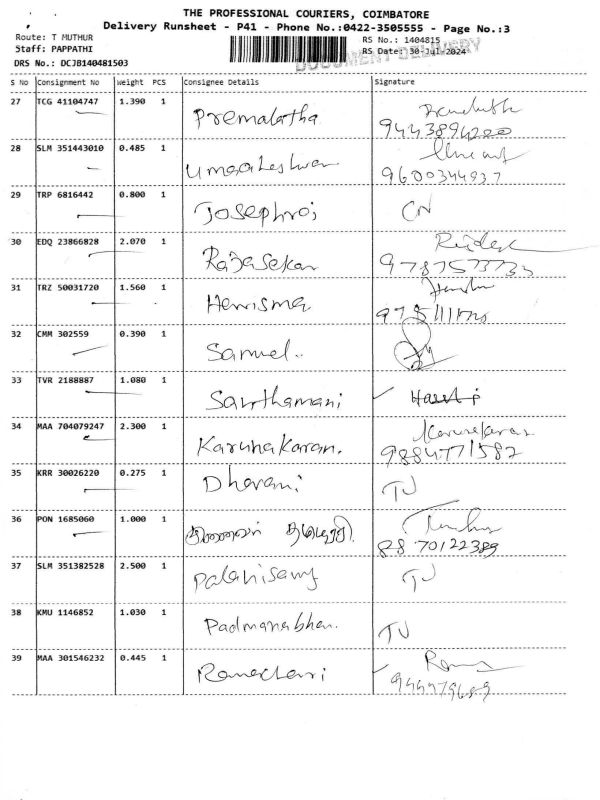 THE PROFESSIONAL COURIERS, COIMBATORE
Delivery Runsheet - P41 - Phone No.:0422-3505555 - Page No.:3
Route: T MUTHUR
RS No.: 1404815
Staff: PAPPATHI
RS Date: 30-Jul-2024
DOCUMENT DELIVERY
DRS No.: DCJB140481503
S No Consignment No Weight PCS Consignee Details Signature
27 TCG 41104747 1.390 1 Premalatha
9443894200
28 SLM 351443010 0.485 1 Umaaheshwari
9600344937
29 TRP 6816442 0.800 1 Josephroj CN
30 EDQ 23866828 2.070 1 Rajasekar
31 TRZ 50031720 1.560 1
32 CMM 302559 0.390 1 Samuel..
33 TVR 2188887 1.080 1 Santhamani
34 MAA 704079247 2.300 1 Karunakaran. Karunakaran
9884771582
35 KRR 30026220 0.275 1 Dharani TJ
36 PON 1685060 1.000 1
8870122389
37 SLM 351382528 2.500 1 Palanisamy TJ
38 KMU 1146852 1.030 1 Padmanabhan. TJ
39 MAA 301546232 0.445 1